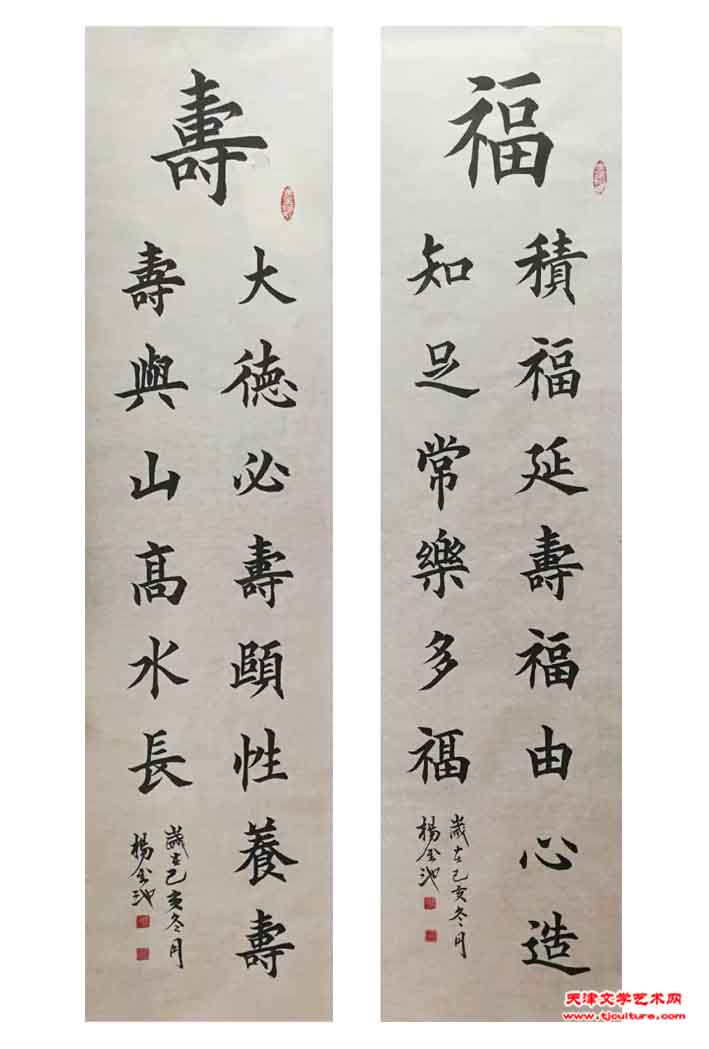 福
積福延壽福由心造
知足常樂多福
歲在己亥冬月
楊金池
壽
大德必壽頤性養壽
壽與山高水長
歲在己亥冬月
楊金池
天津文学艺术网
www.tjculture.com